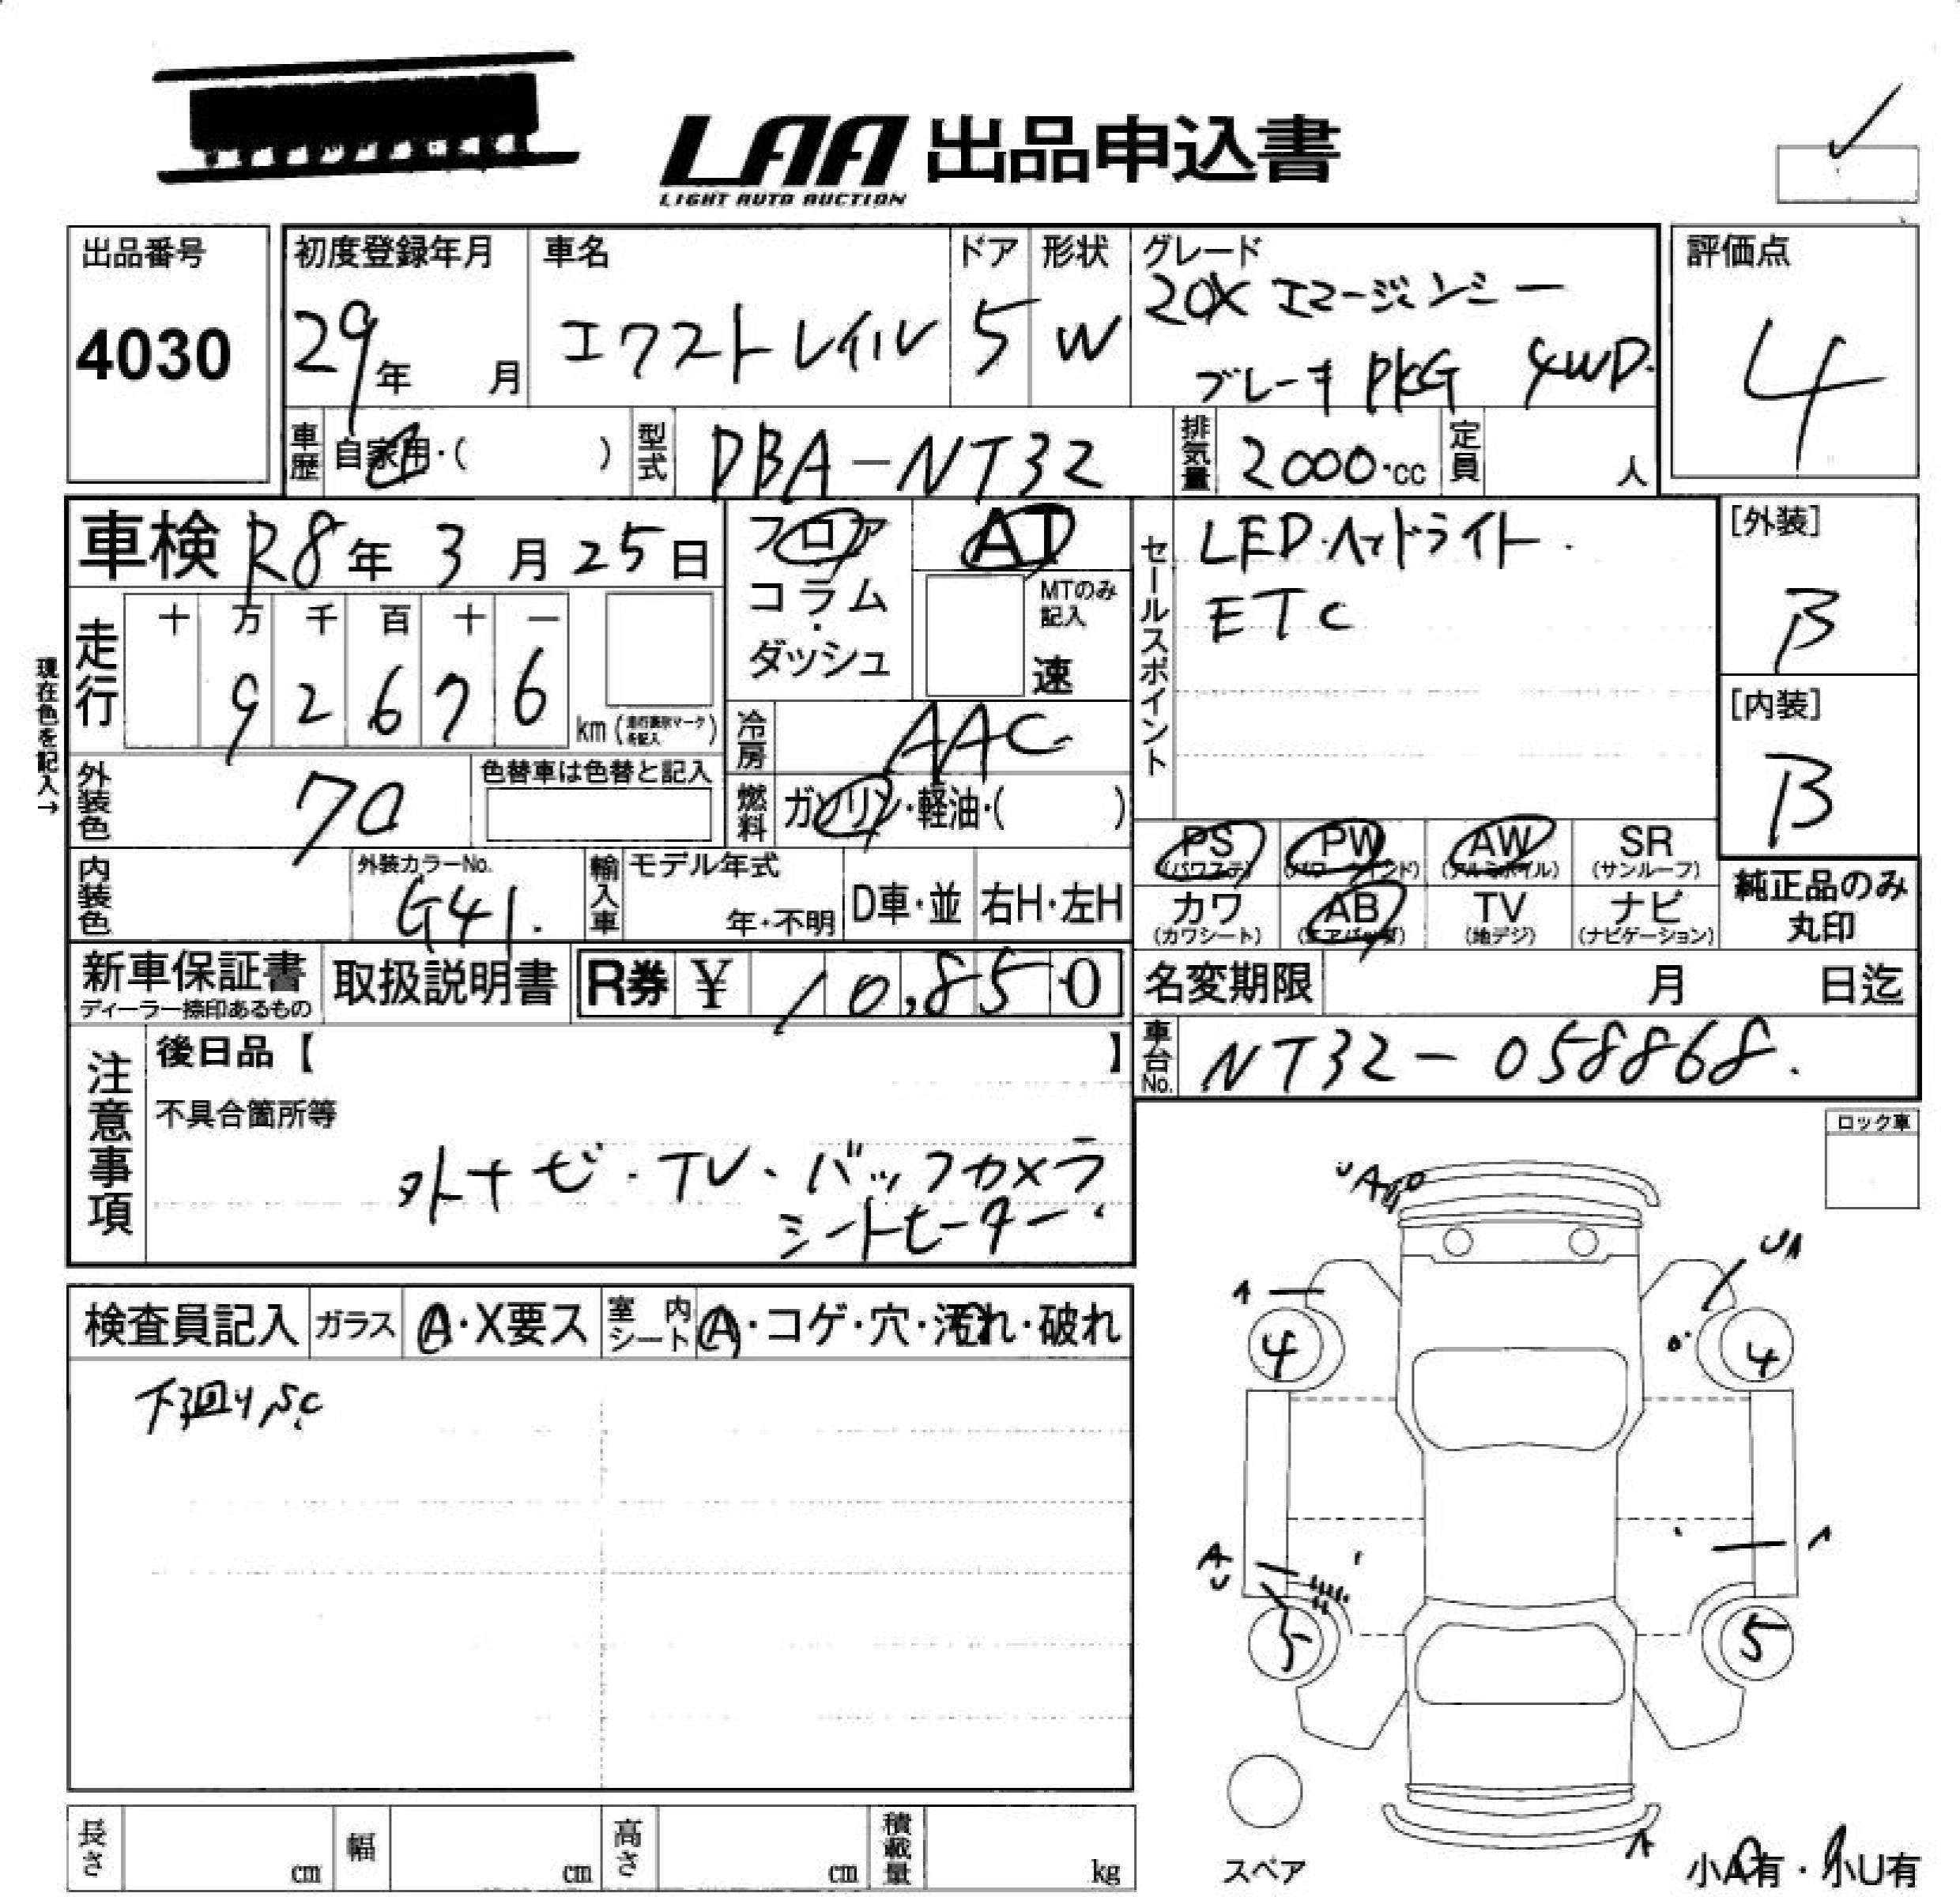 LAA 出品申込書
LIGHT AUTO AUCTION
出品番号
4030
初度登録年月
29年 月
車名
エクストレイル
ドア
5
形状
W
グレード
20X エマージェンシー
ブレーキPKG 4WD.
評価点
4
車歴
自家用・( )
型式
DBA-NT32
排気量
2000.cc
定員
人
車検 R8年 3月 25日
フロア
コラム
・
ダッシュ
AT
MTのみ
記入
速
セールスポイント
LEDヘッドライト.
ETC
[外装]
B
[内装]
B
現在色を記入→
走行
十 万 千 百 十 一
9 2 6 7 6
km (走行表示マーク を記入)
冷房
AAC
外装色
色替車は色替と記入
燃料
ガソリン・軽油・( )
PS
(パワステ)
PW
(パワーウインド)
AW
(アルミホイル)
SR
(サンルーフ)
内装色
外装カラーNo.
G41.
輸入車
モデル年式
年・不明
D車・並
右H・左H
カワ
(カワシート)
AB
(エアバッグ)
TV
(地デジ)
ナビ
(ナビゲーション)
純正品のみ
丸印
新車保証書
ディーラー捺印あるもの
取扱説明書
R券 ¥ 10,850
名変期限 月 日迄
車台No.
NT32-058868.
注意事項
後日品【 】
不具合箇所等
外ナビ・TV・バックカメラ
シートヒーター.
ロック車
検査員記入
ガラス
A・X要ス
室内シート
A・コゲ・穴・汚れ・破れ
下廻りSC
UA
4
4
A
U
5
5
スペア
小A有・小U有
長さ
cm
幅
cm
高さ
cm
積載量
kg